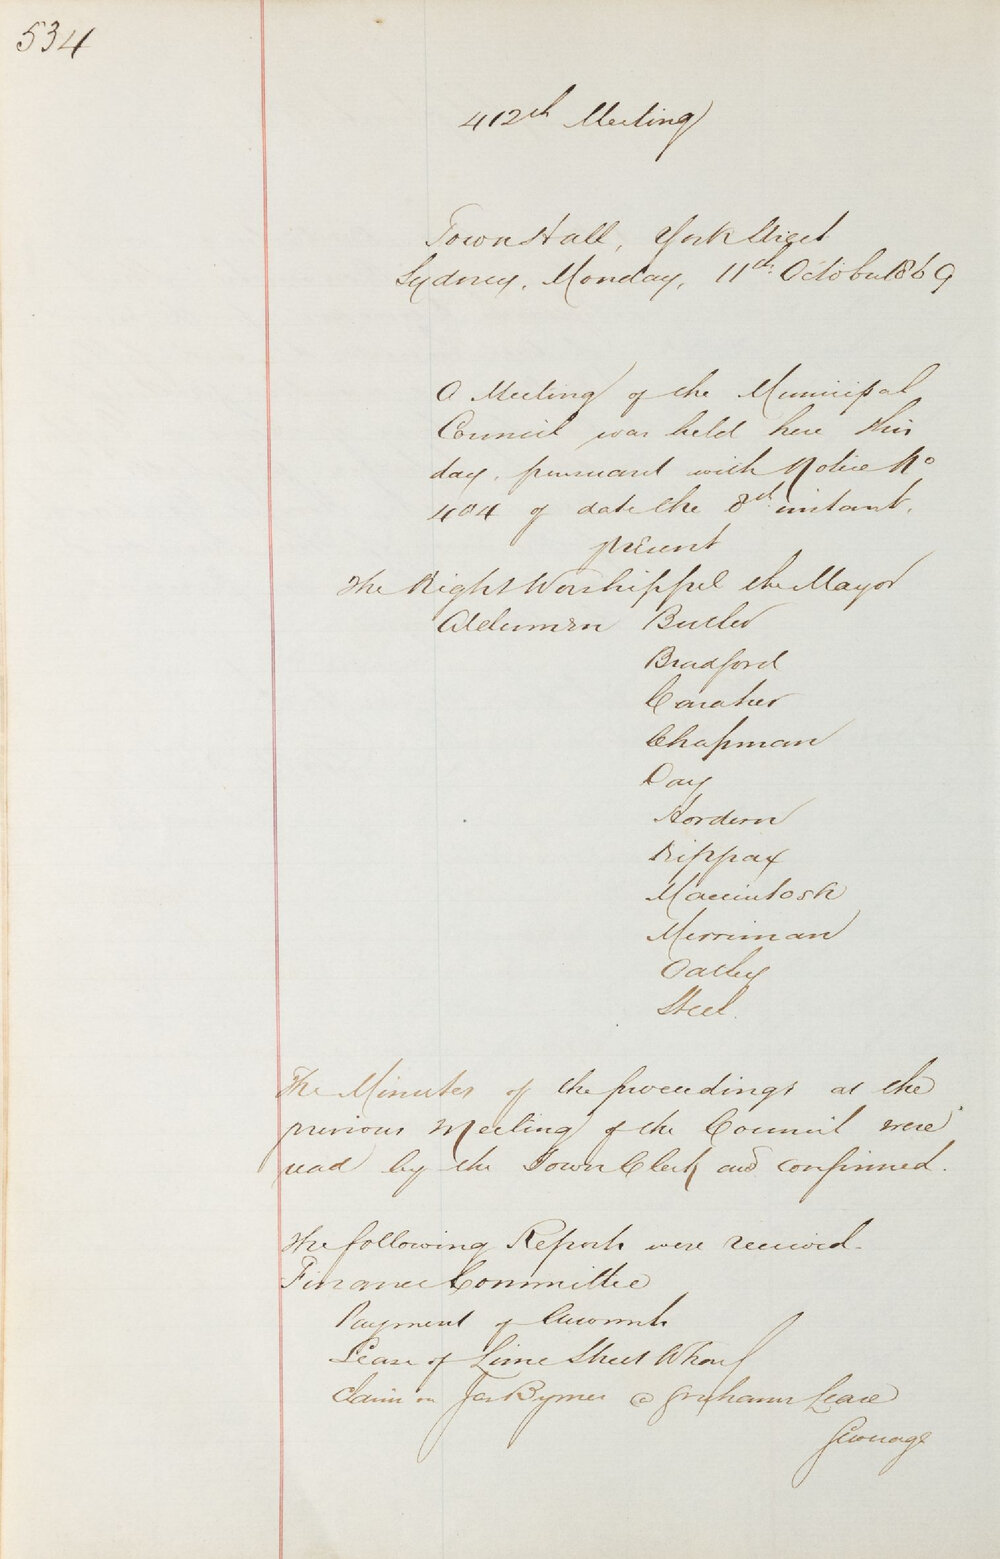 534
412th Meeting
Town Hall, York Street
Sydney, Monday, 11th October 1869
A Meeting of the Municipal
Council was held here this
day, pursuant with Notice No
404 of date the 8th instant.
present
The Right Worshipful the Mayor
Aldermen Butler
Bradford
Caraher
Chapman
Day
Hordern
Kippax
Macintosh
Merriman
Oatley
Steel.
The Minutes of the proceedings at the
previous Meeting of the Council were
read by the Town Clerk and confirmed.
The following Reports were received.
Finance Committee
Payment of Accounts
Lease of Lime Street Wharf
Claim on Jas Byrnes @ Lease
Sewerage